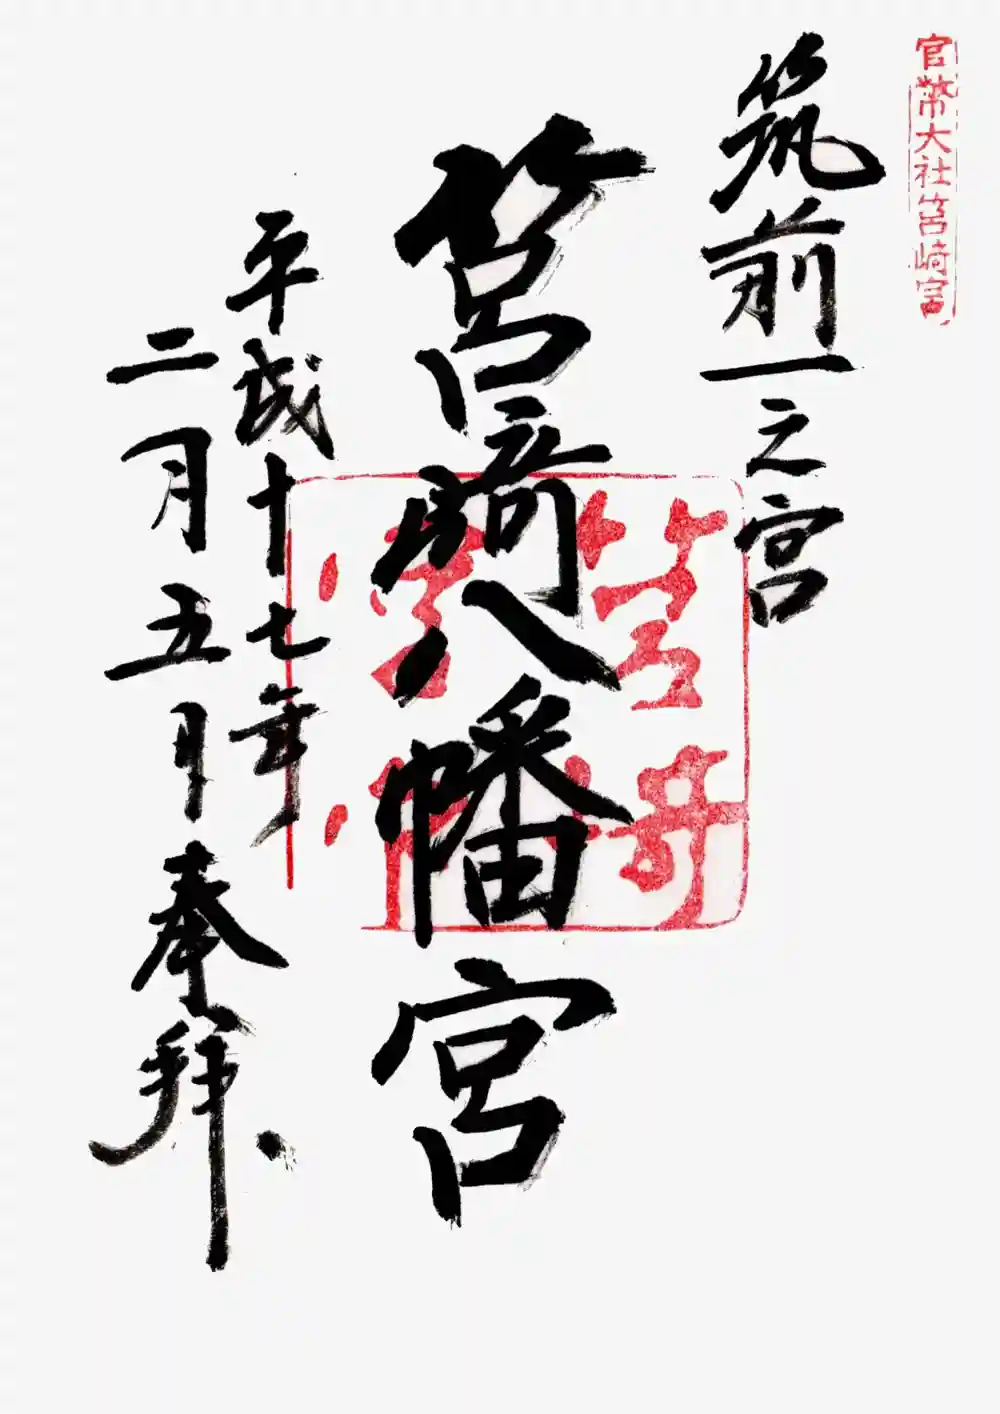 官幣大社筥崎宮
筑前一之宮
筥崎八幡宮
筥崎
平成十七年
二月五日奉拜